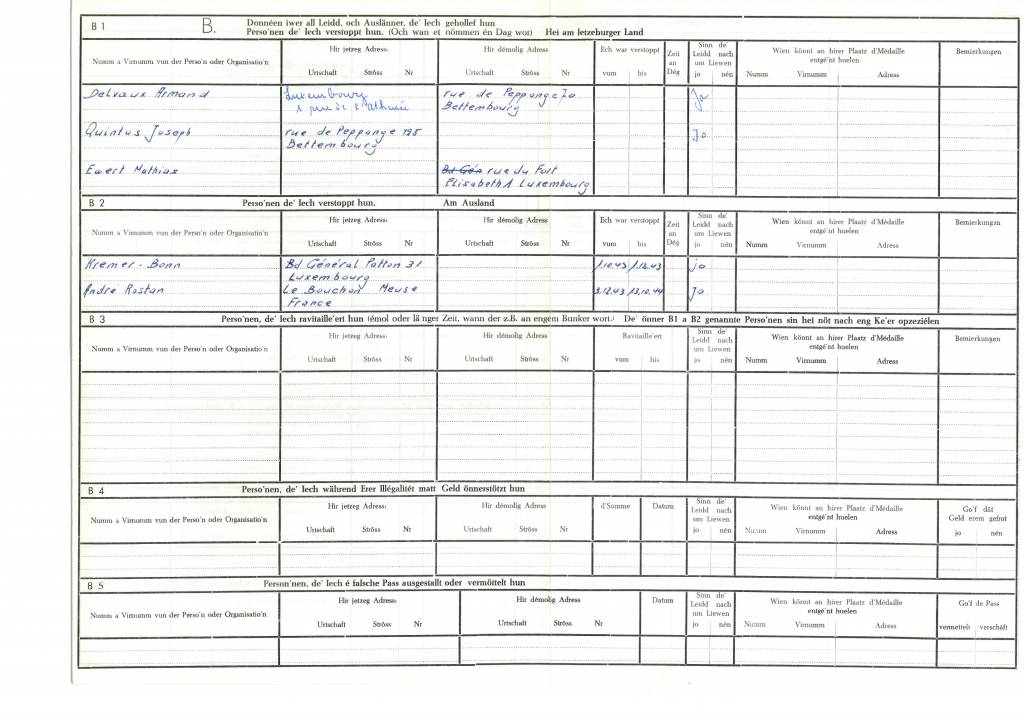 B 1 B. Donnéen iwer all Leidd, och Auslänner, de' Iech gehollef hun
Perso'nen de' Iech verstoppt hun. (Och wan et nömmen én Dag wor) Hei am letzeburger Land
Numm a Virnumm vun der Perso'n oder Organisatio'n Hir jetzeg Adress: Hir démolig Adress Ech war verstoppt Zeit an Dég Sinn de' Leidd nach um Liewen Wien könnt an hirer Plaatz d'Médaille entgé'nt huelen Bemierkungen
Urtschaft Ströss Nr Urtschaft Ströss Nr vum bis jo nén Numm Virnumm Adress
Delvaux Armand Luxembourg rue de Peppange 70 Jo
1 rue de l'athnée Bettembourg
Quintus Joseph rue de Peppange 125 Jo
Bettembourg
Ewert Mathias Bd Gén rue du Fort
Elisabeth 1 Luxembourg
B 2 Perso'nen de' Iech verstoppt hun. Am Ausland
Numm a Virnumm vun der Perso'n oder Organisatio'n Hir jetzeg Adress: Hir démolig Adress Ech war verstoppt Zeit an Dég Sinn de' Leidd nach um Liewen Wien könnt an hirer Plaatz d'Médaille entgé'nt huelen Bemierkungen
Urtschaft Ströss Nr Urtschaft Ströss Nr vum bis jo nén Numm Virnumm Adress
Kremer-Bonn Bd Général Patton 31 1.10.43 1.12.43 jo
Luxembourg
André Rostan Le Bouchon Meuse 3.12.43 13.10.44 Jo
France
B 3 Perso'nen, de' Iech ravitaille'ert hun (émol oder länger Zeit, wann der z.B. an engem Bunker wort.) De' önner B1 a B2 genannte Perso'nen sin hei nöt nach eng Ke'er opzeziélen
Numm a Virnumm vun der Perso'n oder Organisatio'n Hir jetzeg Adress: Hir démolig Adress Ravitaille'ert Sinn de' Leidd nach um Liewen Wien könnt an hirer Plaatz d'Médaille entgé'nt huelen Bemierkungen
Urtschaft Ströss Nr Urtschaft Ströss Nr vum bis jo nén Numm Virnumm Adress
B 4 Perso'nen, de' Iech während Erer Illégalitét matt Geld önnerstötzt hun
Numm a Virnumm vun der Perso'n oder Organisatio'n Hir jetzeg Adress: Hir démolig Adress d'Somme Datum Sinn de' Leidd nach um Liewen Wien könnt an hirer Plaatz d'Médaille entgé'nt huelen Go'f dât Geld erem gefrot
Urtschaft Ströss Nr Urtschaft Ströss Nr jo nén Numm Virnumm Adress jo nén
B 5 Person'nen, de' Iech é falsche Pass ausgestallt oder vermöttelt hun
Numm a Virnumm vun der Perso'n oder Organisatio'n Hir jetzeg Adress: Hir démolig Adress Datum Sinn de' Leidd nach um Liewen Wien könnt an hirer Plaatz d'Médaille entgé'nt huelen Go'f de Pass
Urtschaft Ströss Nr Urtschaft Ströss Nr jo nén Numm Virnumm Adress vermettelt verschâft